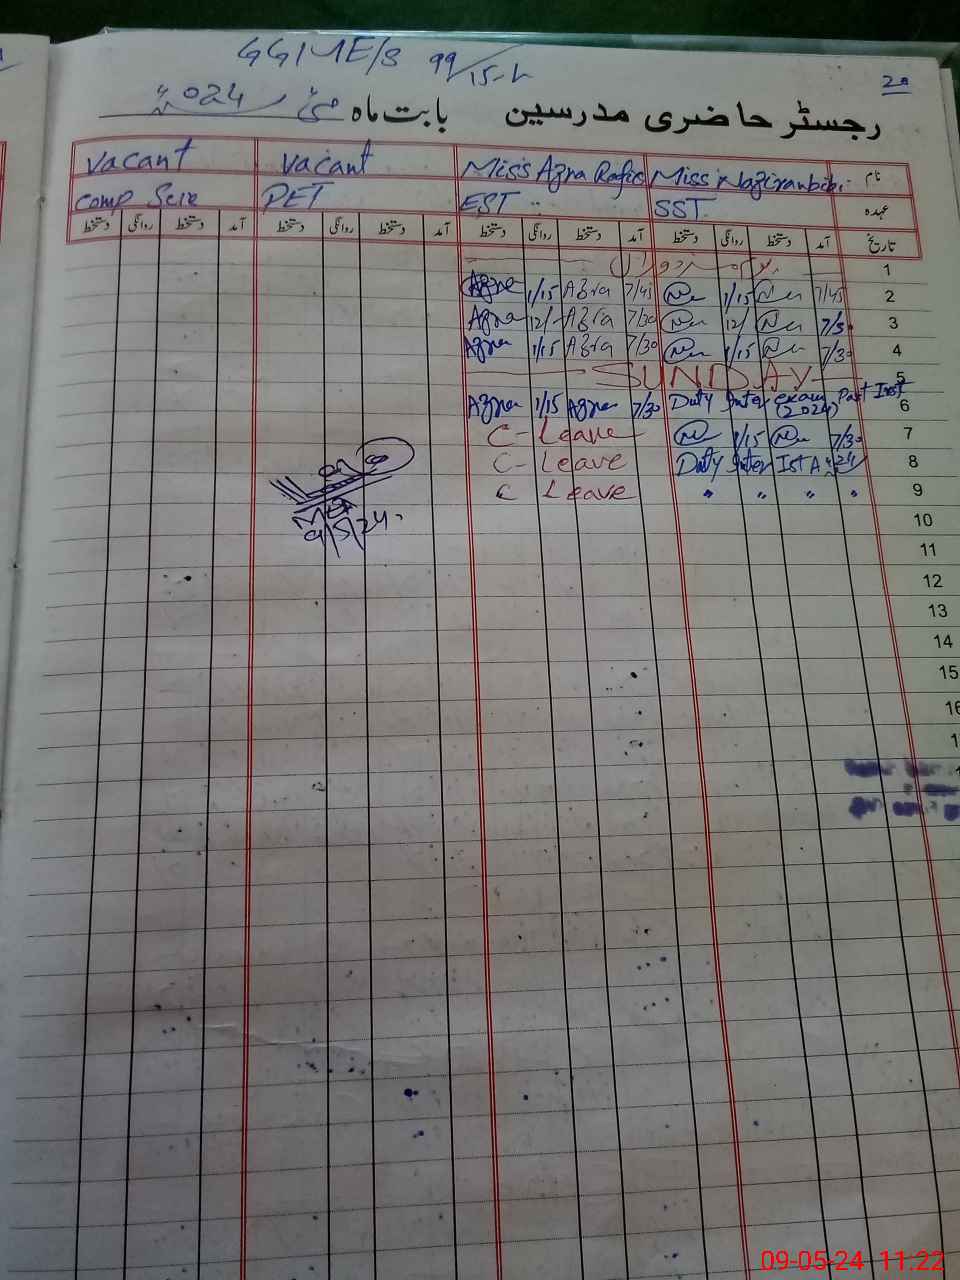 GGIMES/S 99/15-L
20
رجسٹر حاضری مدرسین بابت ماہ مئی 2024ء
نام Miss Naziran bibi. Miss Azra Rafiq Vacant Vacant
عہدہ SST EST PET Comp Scie
تاریخ آمد دستخط روانگی دستخط آمد دستخط روانگی دستخط آمد دستخط روانگی دستخط آمد دستخط روانگی دستخط
1
Azra 1/15 Azra 7/45 1/15 7/45 2
Azra 12/- Azra 7/30 12/ 7/3 3
Azra 1/15 Azra 7/30 1/15 7/30 4
SUNDAY 5
Azra 1/15 Azra 7/30 Duty Inter exam (2024) Part Ist 6
C - Leave 1/15 7/30 7
C - Leave Duty Inter Ist A 24 8
C Leave " " " " 9
9/5/24.
10
11
12
13
14
15
16
1
09-05-24 11:22